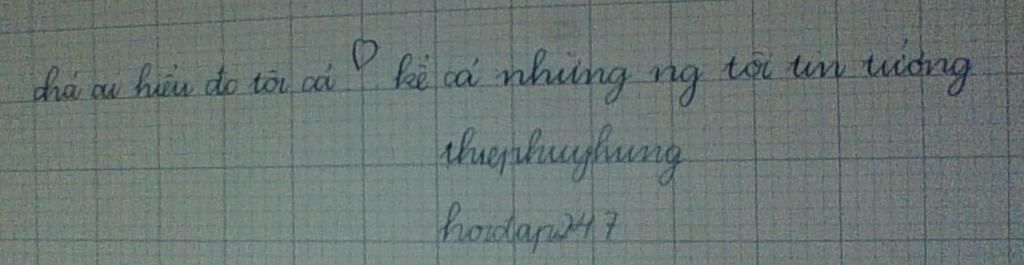 chả ai hiểu do tôi cả ♡ kể cả những ng tôi tin tưởng
thuephuyhung
hoidap247